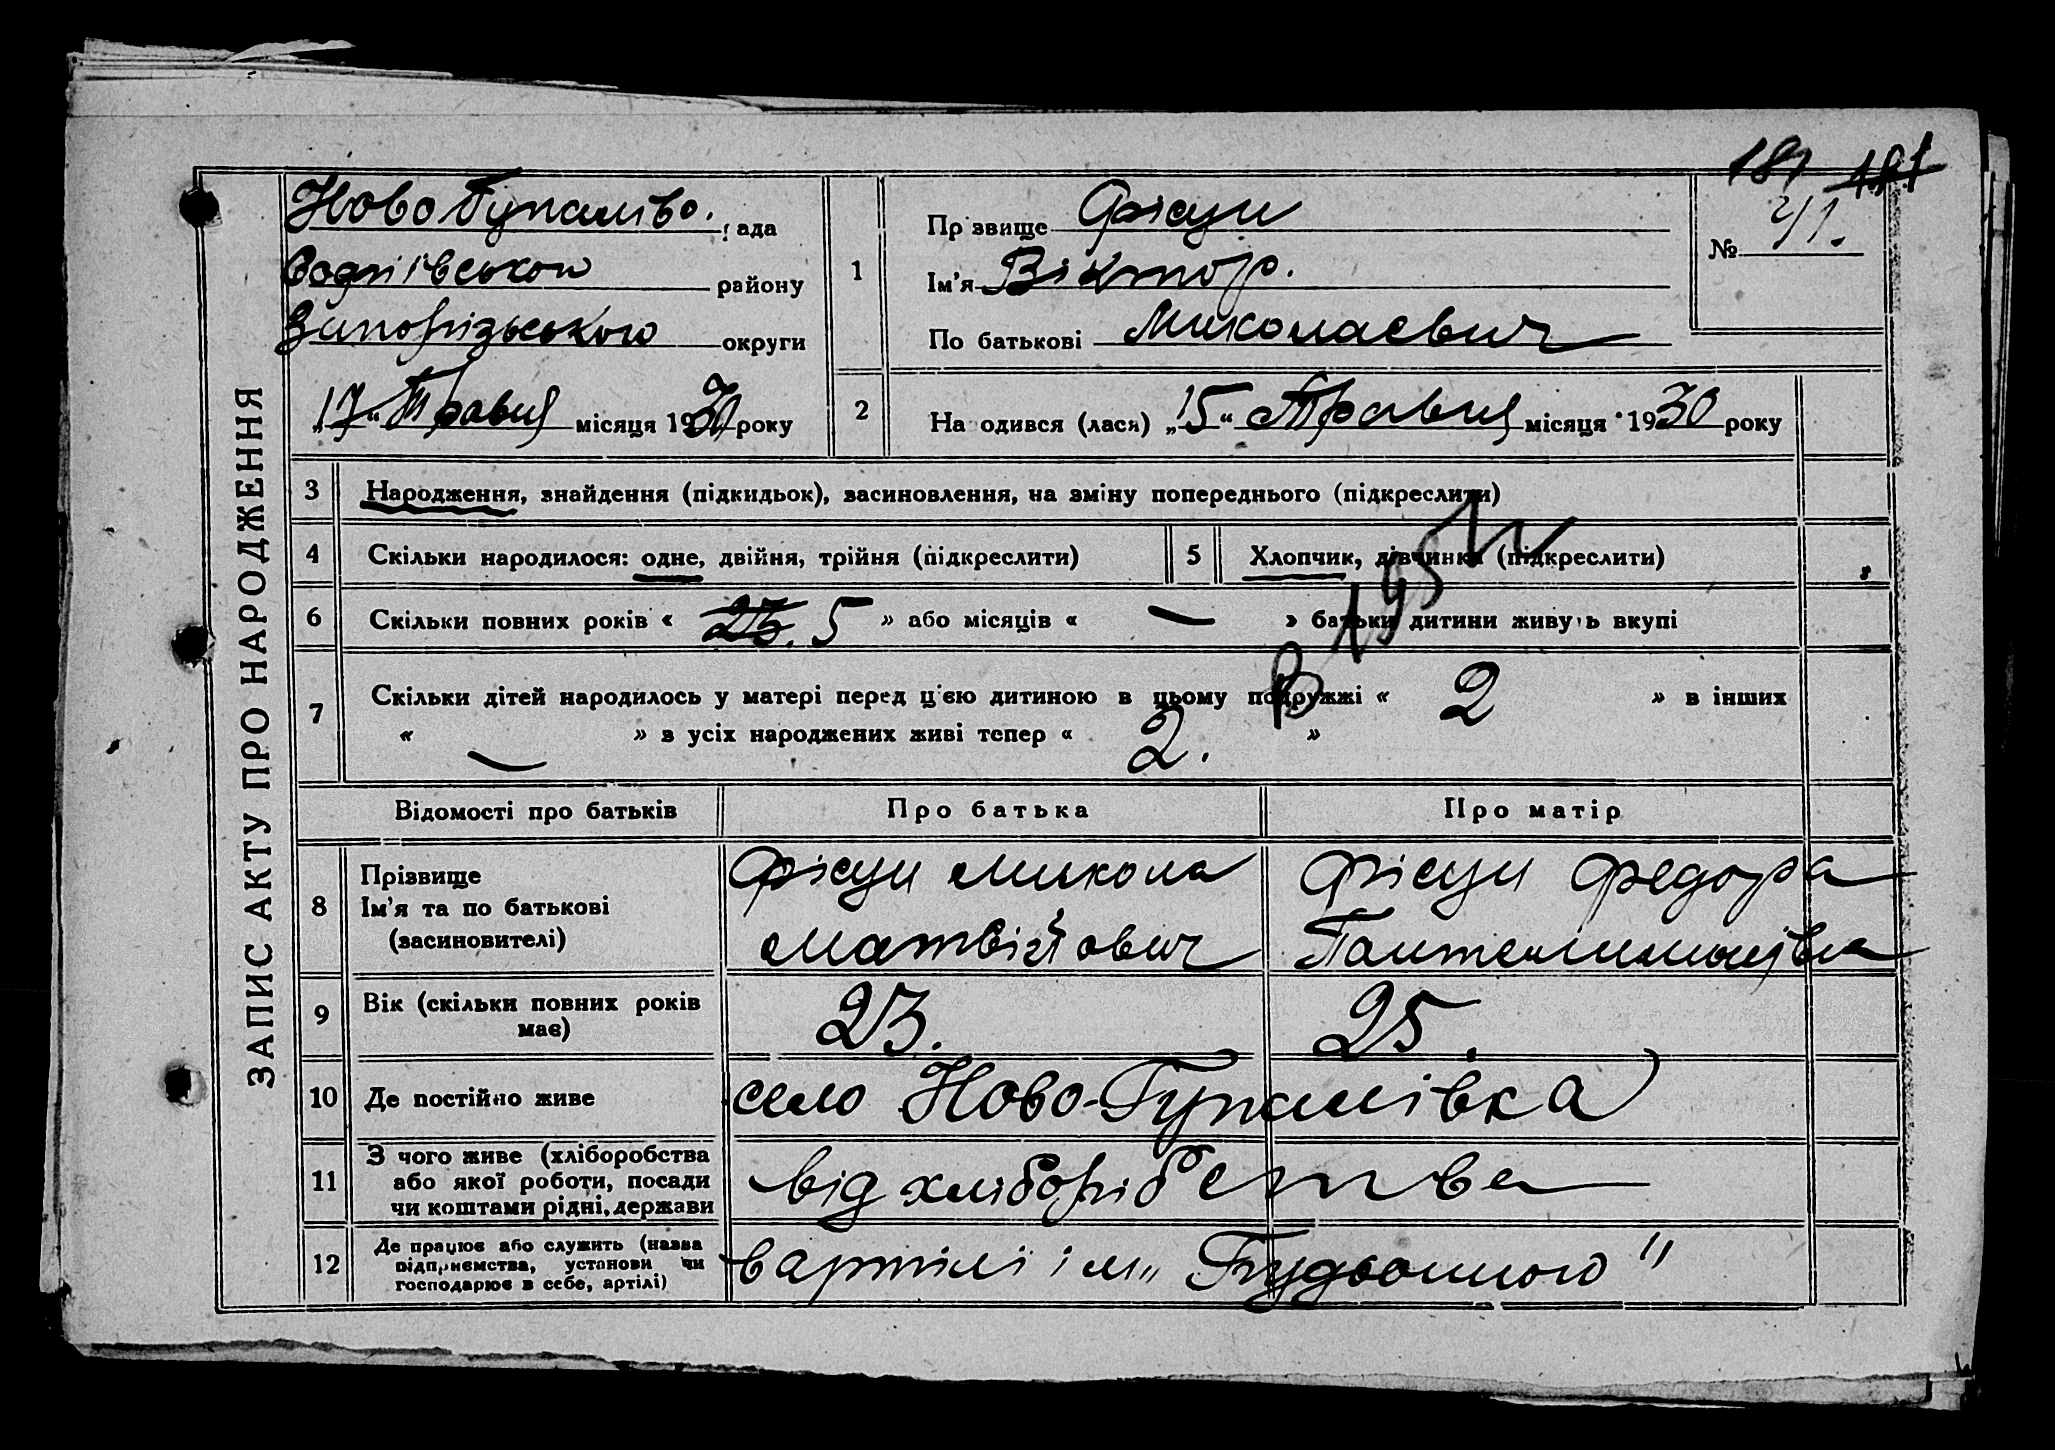 181 181
ЗАПИС АКТУ ПРО НАРОДЖЕННЯ
Ново Гупалівс. рада
району
Запорізького округи
„17“ Травня місяця 1930 року
1
Прізвище Фісун
Ім'я Віктор.
По батькові Миколаєвич
№ 41.
2
Народився (лася) „15“ Травня місяця 1930 року
3 Народження, знайдення (підкидьок), засиновлення, на зміну попереднього (підкреслити)
4 Скільки народилося: одне, двійня, трійня (підкреслити) 5 Хлопчик, дівчинка (підкреслити)
6 Скільки повних років « 23. 5 » або місяців « — » батьки дитини живуть вкупі
7 Скільки дітей народилось у матері перед цією дитиною в цьому подружжі « 2 » в інших
« — » в усіх народжених живі тепер « 2. »
Відомості про батьків Про батька Про матір
8 Прізвище
Ім'я та по батькові
(засиновителі)
Фісун Микола
Матвійович
Фісун Федора
Пантелимонівна
9 Вік (скільки повних років
має) 23. 25.
10 Де постійно живе село Ново-Гупалівка
11 З чого живе (хліборобства
або якої роботи, посади
чи коштами рідні, держави
від хліборібства
12 Де працює або служить (назва
підприємства, установи чи
господарює в себе, артілі)
в артілі ім „Будьонного"